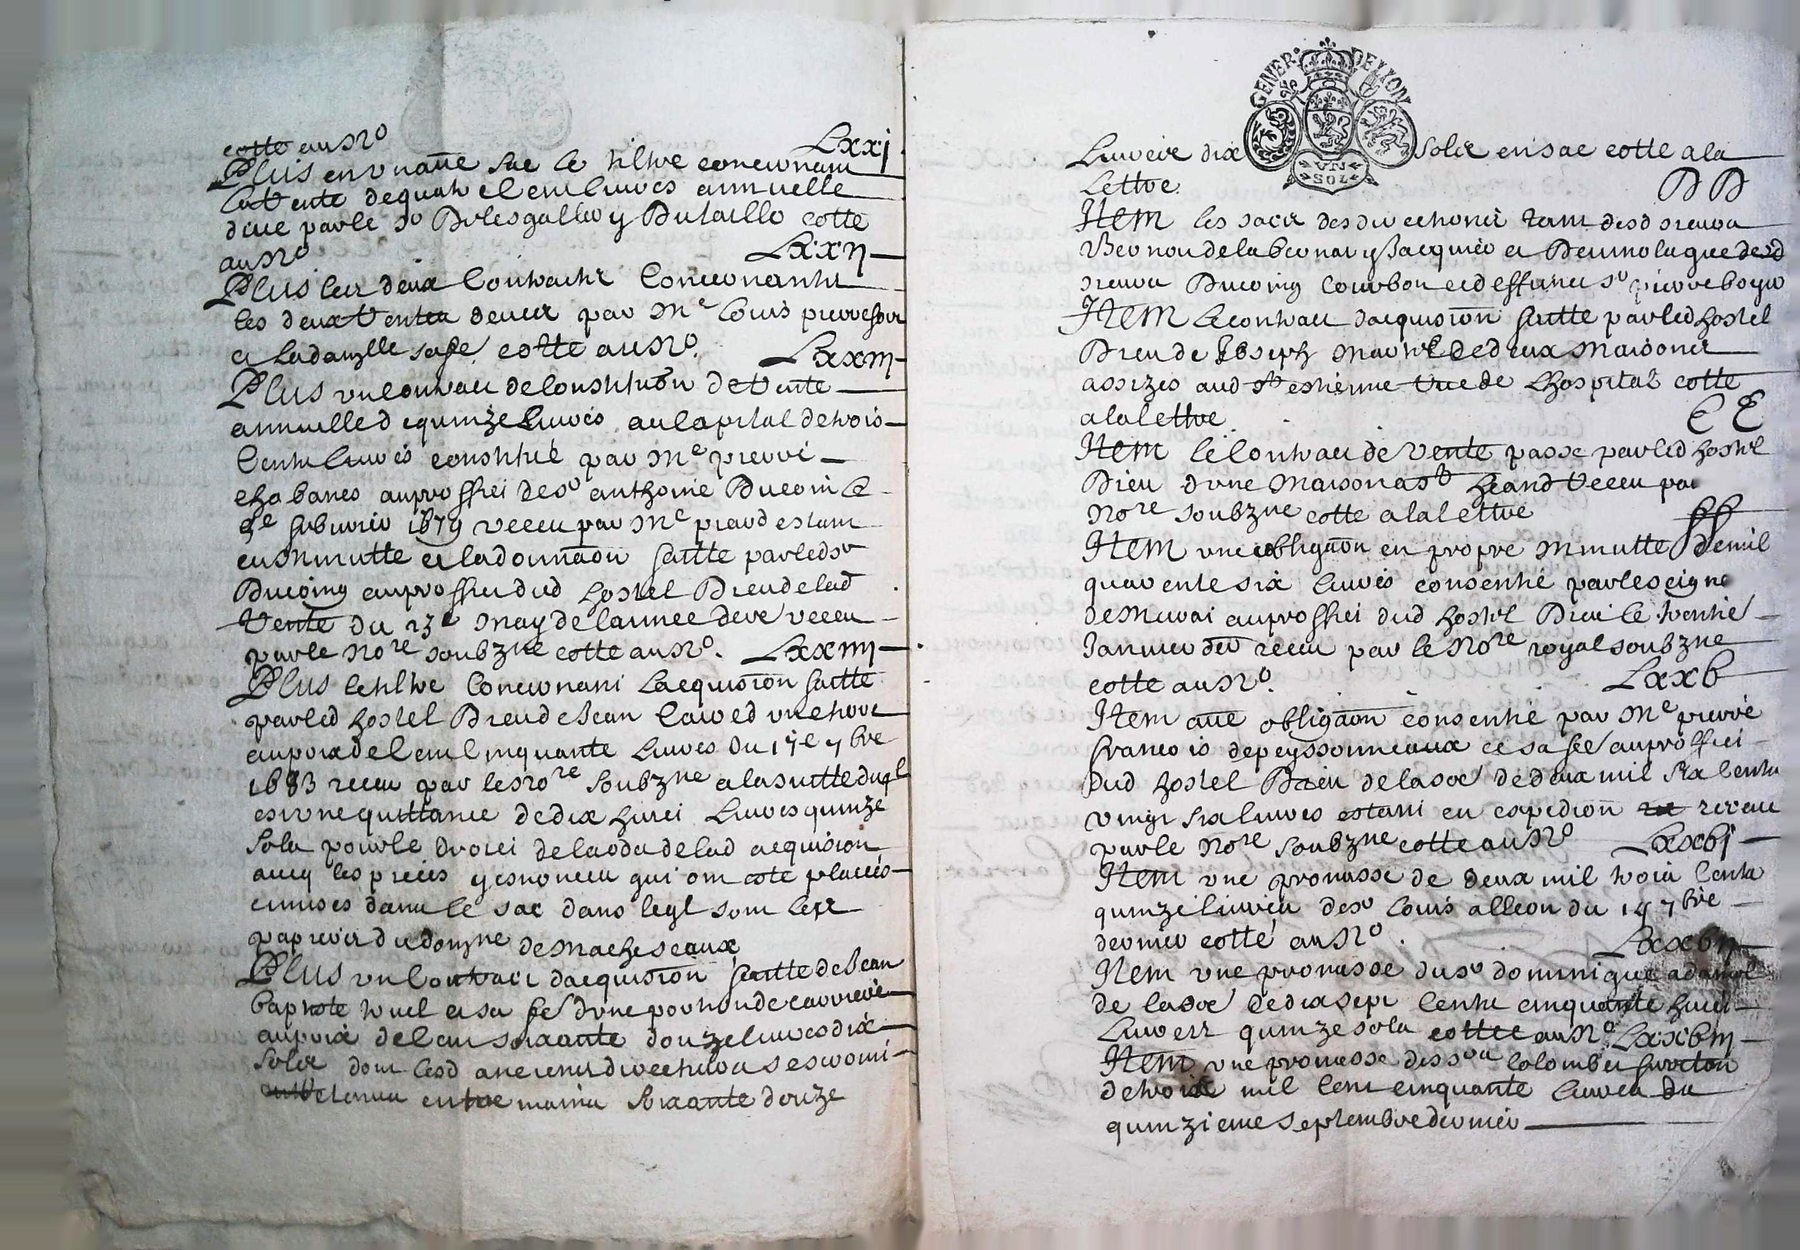 cotte au No LXXI
Plus en un aue sac le tiltre concernant
la Rente de quatre cent livres annuelle
deue par le Sr Dutaille cotte
au No LXXII
Plus les deux Contracts Concernants
les deux Rentes deues par Me Louis pierrefort
et la damzelle sa fe cotte au No. LXXIII
Plus un contract de constitution de Rente
annuelle de quinze Livres au capital de trois
Cents livres constitué par Me pierre
chabanes au proffict de Sr anthoine Ducoin le
febvrier 1679 receu par Me praud estant
en minutte et la donnaon faitte par led Sr
Ducoing au proffict dud hostel Dieu de lad
Rente du 23e may de l'annee dere receu
par le Nore soubzne cotte au No. LXXIIII
Plus le tiltre Concernant L'acquision faitte
par led hostel Dieu de Jean une hort
au prix de Cent Cinquante Livres du 17e 7bre
1683 receu par le Nore soubzne a la suitte duql
est une quittance de dix huict Livres quinze
sols pour le droict de laods de lad acquision
avecq les pieces y esnoncees qui ont esté placeés
et mises dans le sac dans leql sont les
papiers du domyne de Machesseaux
Plus un Contract d'acquision faitte de Jean
baptiste et sa fe d'une portion de
au prix de Cent soixante douze livres dix
solz dont lesd anciens directeurs
retenu entre mains soixante douze
GENER. DE LYON
UN SOL
Livres dix solz en sac cotte a la
Lettre. DD
Item les sacs des directions tant desd sieurs
Bernou de la bernary Jacquier et Dermolague desd
sieurs Ducoing Courbon et Sr pierre boyer
Item le contract d'acquision faitte par led hostel
Dieu de Joseph de deux Maisons
assizes aud St estienne rue de Lhospital cotte
a la lettre EE
Item le Contract de vente passe par led hostel
Dieu d'une Maison a Sr receu par
Nore soubzne cotte a la lettre ff
Item une obligaon en propre minutte de mil
quarente six livres consentie par le seigne
de au proffict dud hostel Dieu le trentie
Janvier der receu par le Nore royal soubzne
cotte au No. LXXV
Item aue obligaon consentie par Me pierre
francois depeyssonneaux et sa fe au proffict
dud hostel Dieu de la soe de deux mil six Cents
vingt six livres estant en expedion receue
par le Nore soubzne cotte au No LXXVI
Item une promesse de deux mil trois Cents
quinze livres de Sr Louis alleon du 14 7bre
dernier cotte au No. LXXVII
Item une promesse du Sr dominique
de la soe de dix sept Cents cinquante huict
Livres quinze sols cottee au No. LXXVIII
Item une promesse des Srs Colombet
de trois mil Cent cinquante livres du
quinzieme septembre dernier